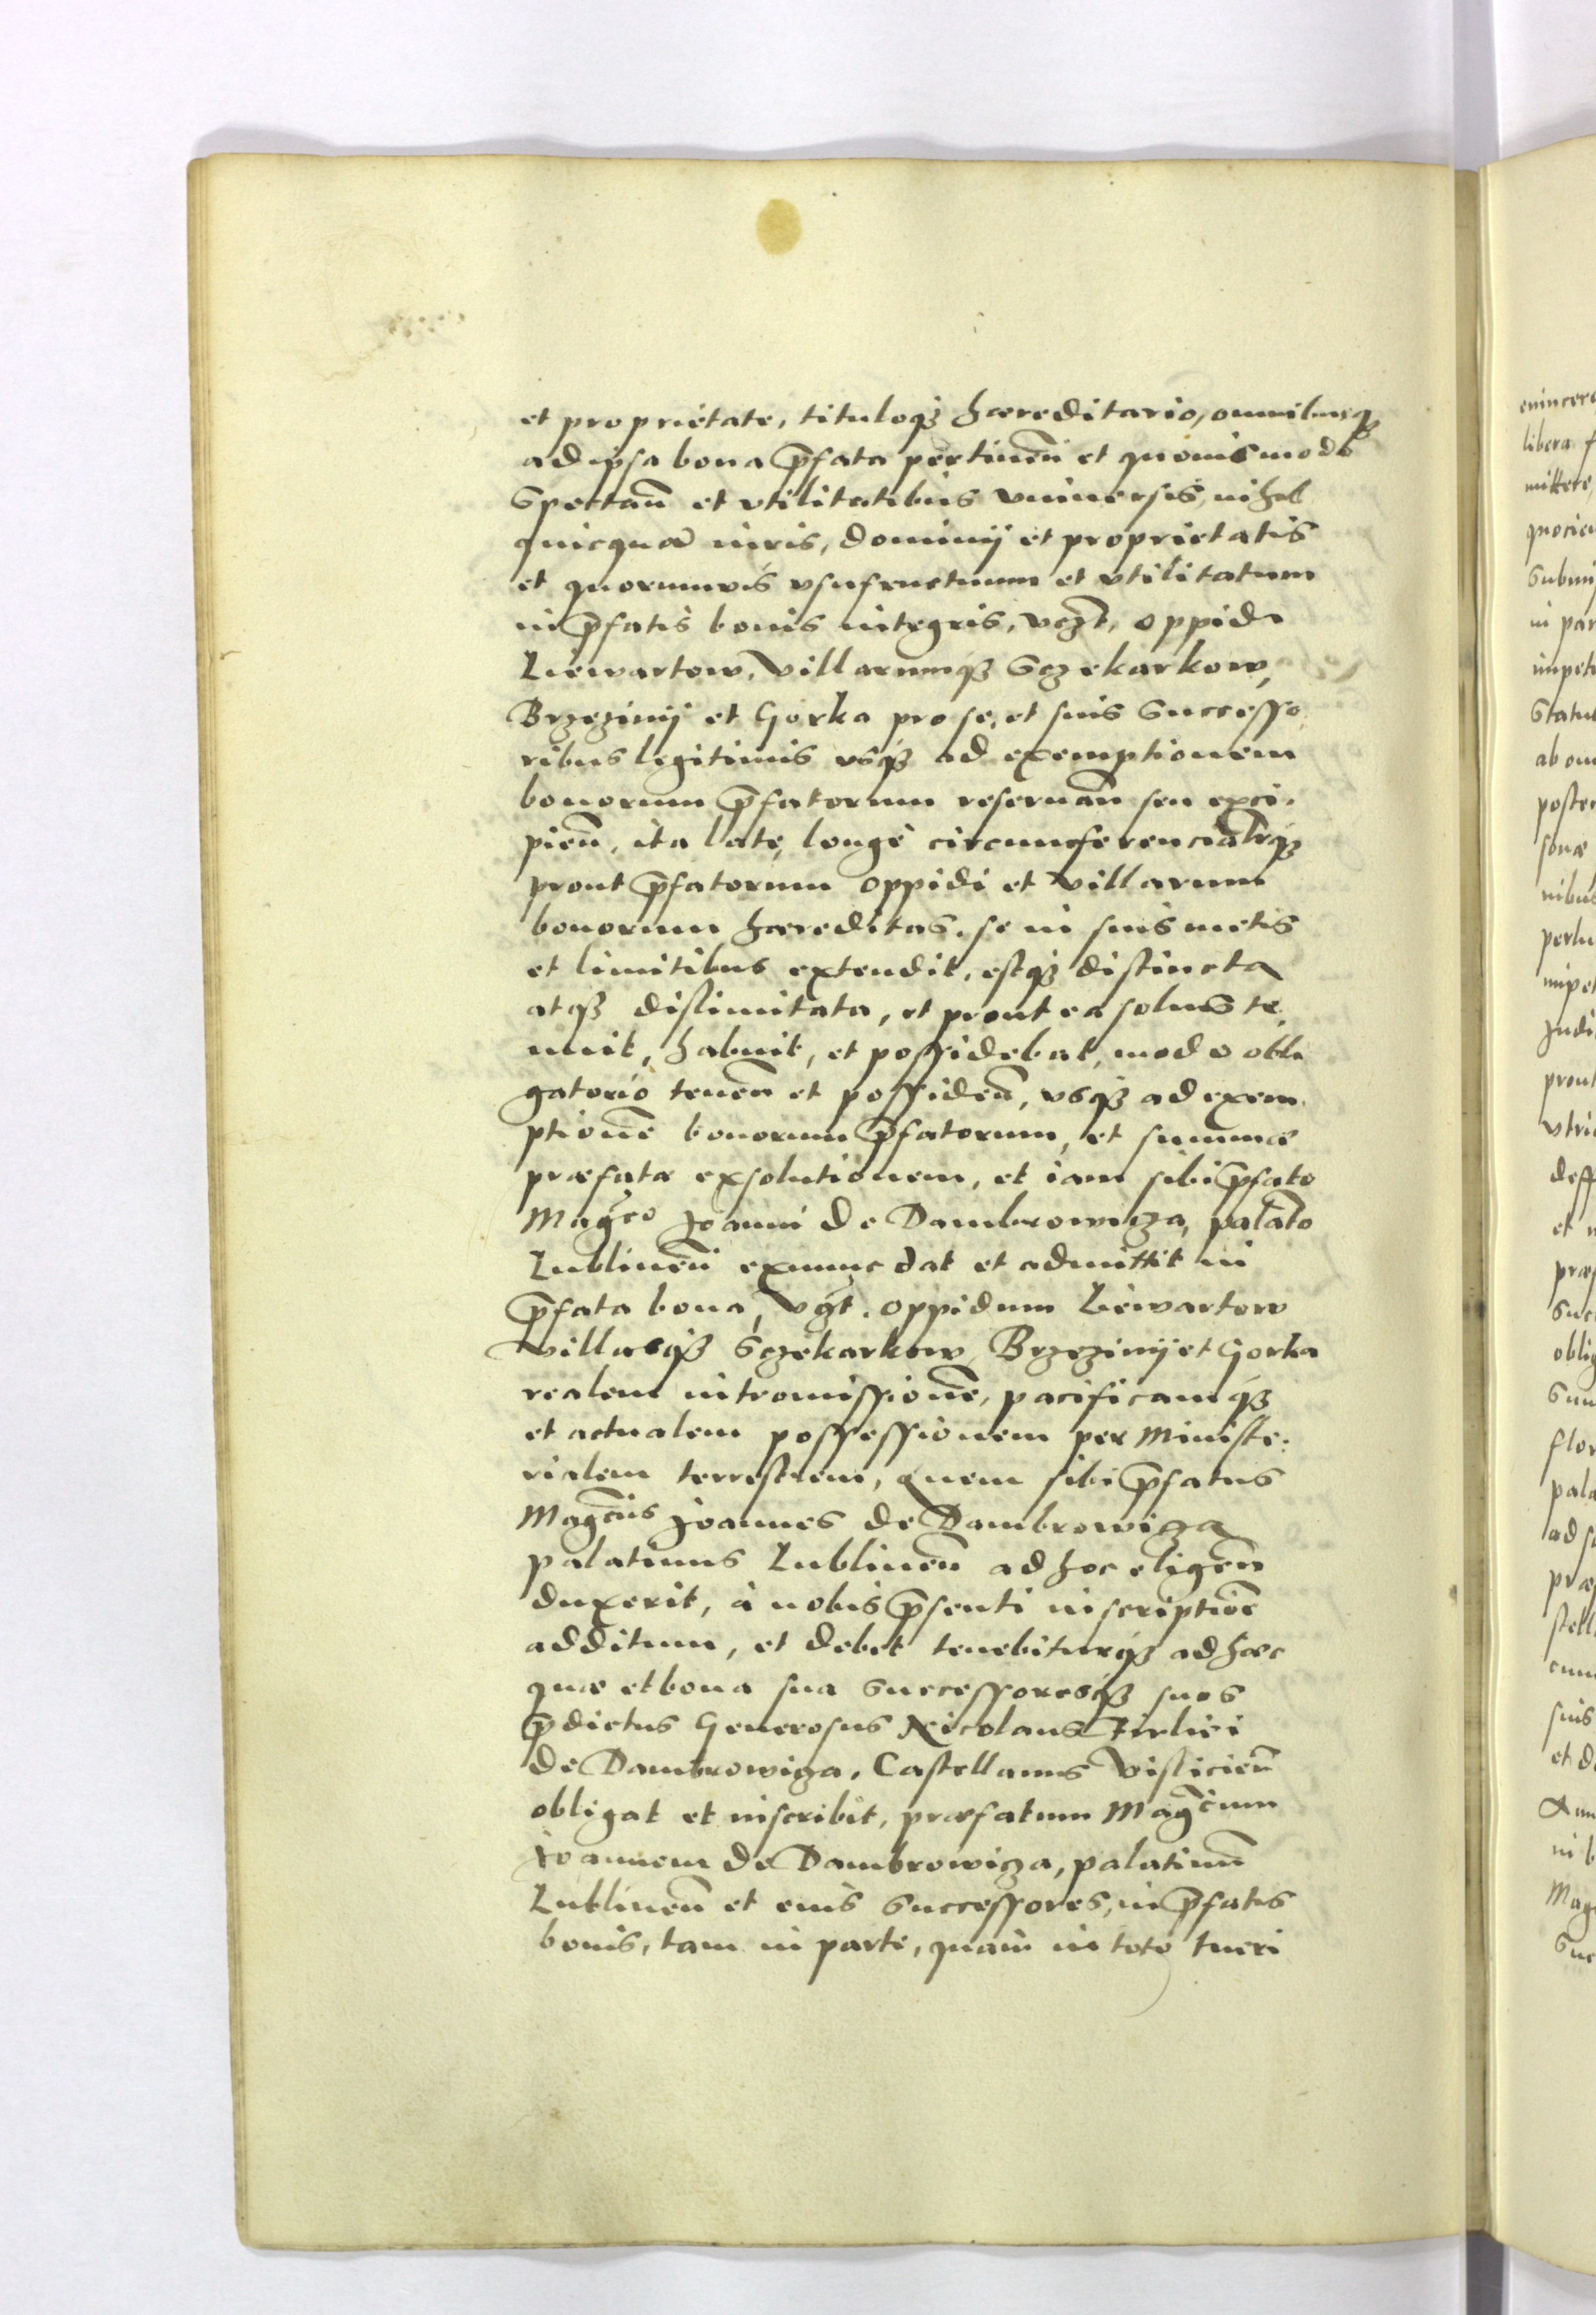 et proprietate, tituloq₃ hæreditario, omnibusq₃
ad ipsa bona p̄fata pertineñ et quouismodo
Spectañ et vtilitatibus vniuersis, nihil
quicquã iuris, dominij et proprietatis
et quorumuis vsufructuum et vtilitatum
in p̄fatis bonis integris, vcz̃t, oppido
Liewartow, villarumq₃ Sczekarkow,
Brzezinij et Gorka pro se, et suis Successo,
ribus legitimis vsq₃ ad exemptionem
bonorum p̄fatorum reseruañ seu exci,
pień, ita late, longè circumferencialr̃q₃
prout p̄fatorum oppidi et villarum
bonorum hæreditas, se in suis metis
et limitibus extendit, estq₃ distincta
atq₃ dislimitata, et prout ea solus te,
nuit, habuit, et possidebat, modo obli
gatorio teneñ et possideñ, vsq₃ ad exem,
ptionẽ bonorum p̄fatorum, et summæ
præfatæ exsolutionem, et iam sibi p̄fato
Mag̃co Joanni de Dambrowicza, palat̃o
Lublineñ exnunc dat et admittit in
p̄fata bona, vz̃t. oppidum Liewartow
villasq₃ Sczekarkow, Brzezinij et Gorka
realem intromissionẽ, pacificamq₃
et actualem possessionem per Ministe,
rialem terrestrem, quem sibi p̄fatus
Mag̃cus Joannes de Dambrowicza
palatinus Lublineñ ad hoc eligeñ
duxerit, à nobis p̄senti inscriptiõe
additum, et debet tenebiturq₃ ad hæc
quæ et bona sua Successoresq₃ suos
p̄dictus Generosus Nicolaus Firliei
de Dambrowicza, Castellanus Vislicień
obligat et inscribit, præfatum Mag̃cum
Joannem de Dambrowicza, palatinũ
Lublineñ et eius Successores, in p̄fatis
bonis, tam in parte, quàm in toto tueri